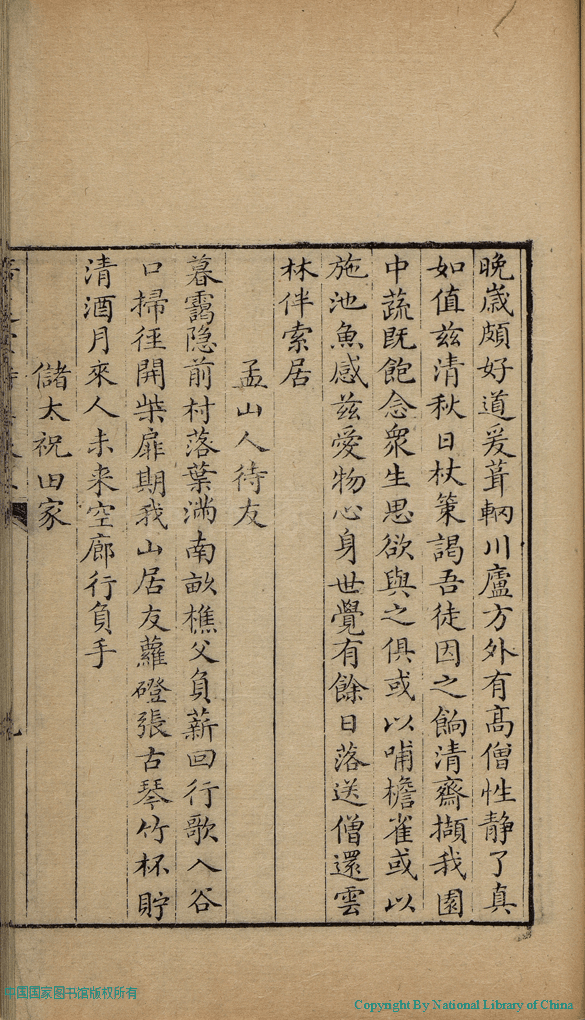 晚歲頗好道爰葺輞川廬方外有高僧性靜了真
如值茲清秋日杖策謁吾徒因之餉清齋擷我園
中蔬既飽念衆生思欲與之俱或以哺檐雀或以
施池魚感茲愛物心身世覺有餘日落送僧還雲
林伴索居
孟山人待友
暮靄隐前村落葉滿南畝樵父負薪回行歌入谷
口掃徑開柴扉期我山居友蘿磴張古琴竹杯貯
清酒月來人未来空廊行負手
儲太祝田家
中国国家图书馆版权所有
Copyright By National Library of China